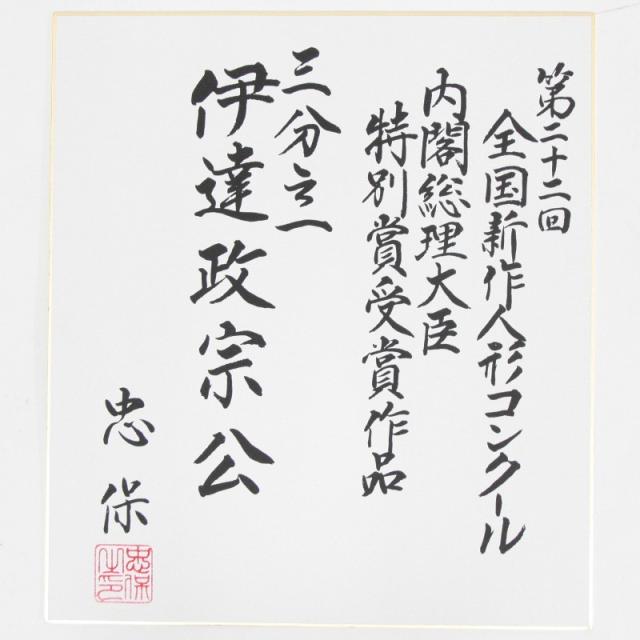 第二十二回
全国新作人形コンクール
内閣総理大臣
特別賞受賞作品
三分之一
伊達政宗公
忠保
忠保之印